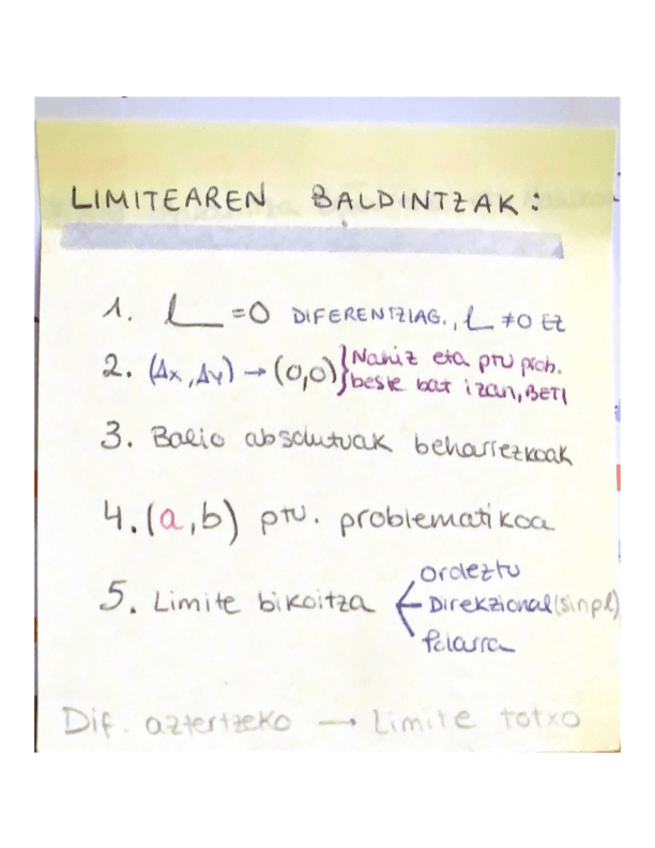 LIMITEAREN BALDINTZAK:
1. L=0 DIFERENTZIAG., L≠0 EZ
2. (Δx,Δy)→(0,0)}Nahiz eta ptu prob.
beste bat izan, BETI
3. Balio absolutuak beharrezkoak
4. (a,b) ptu. problematikoa
5. Limite bikoitza
Ordeztu
Direkzional(sinpl)
Polarra
Dif. aztertzeko → Limite totxo